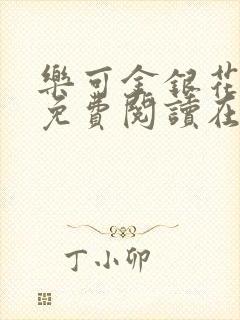 樂可金銀花
免費閱讀在
丁小卯